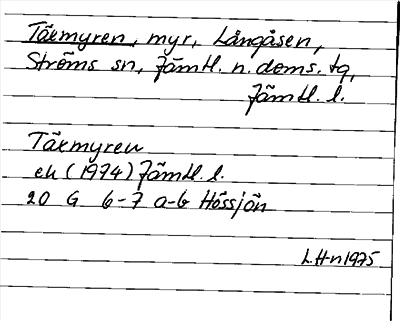 Täxmyren, myr, Långåsen,
Ströms sn, Jämtl. n. doms. tg,
Jämtl. l.
Täxmyren
ek (1974) Jämtl. l.
20 G 6-7 a-b Hössjön
L.Hn 1975